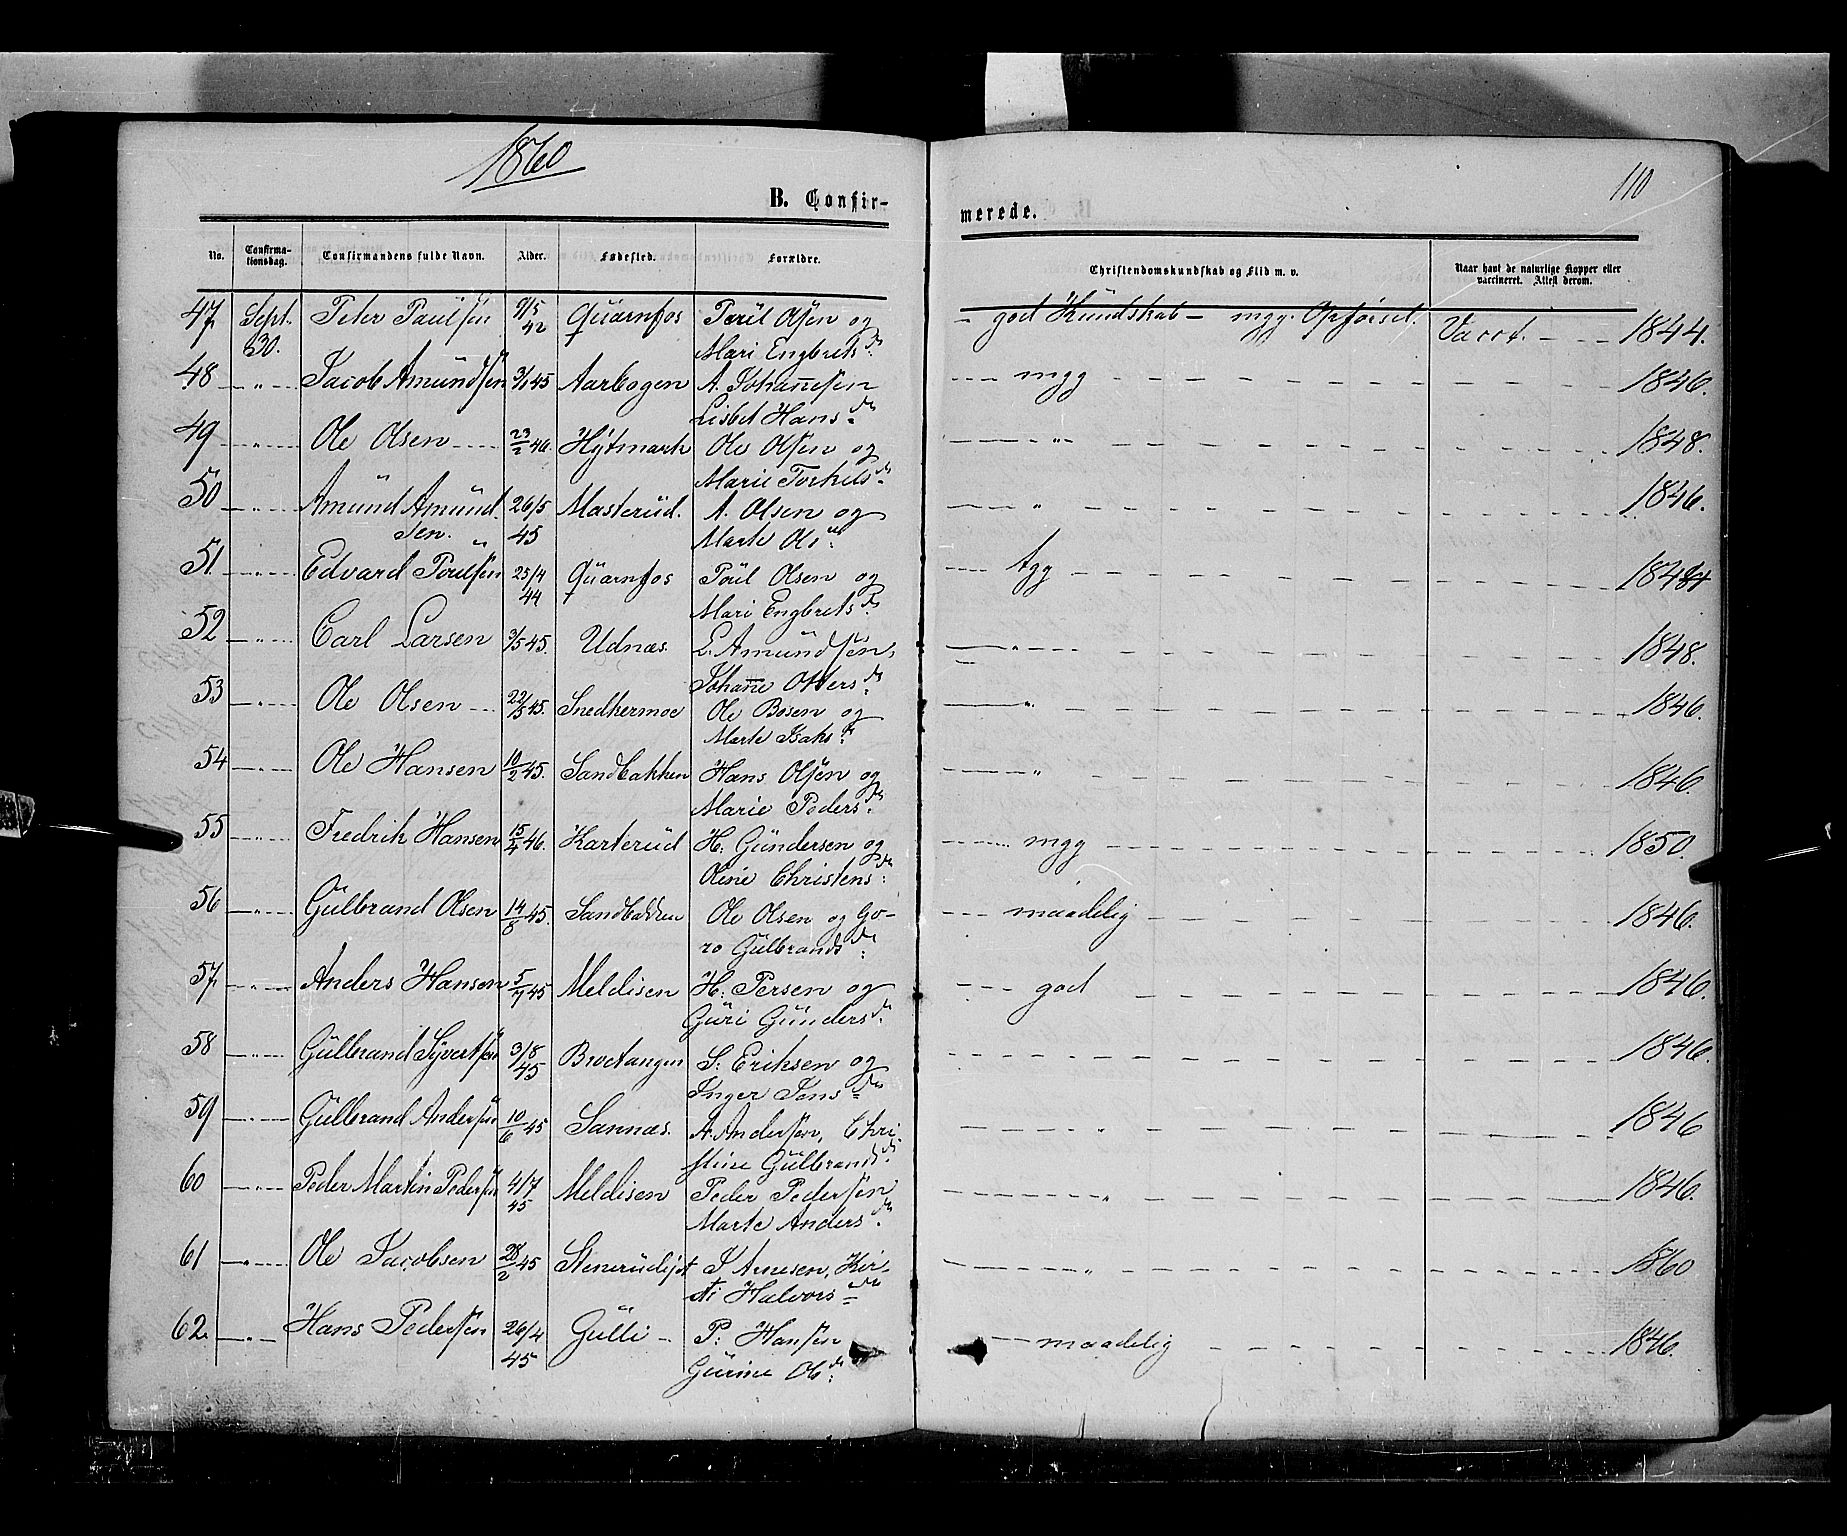 1860
110
B. Confir-
merede.
No. Confirma-tionsdag. Confirmandens fulde Navn. Alder. Fødested. Forældre. Christendomskundskab og Flid m. v. Naar havt de naturlige Kopper eller vaccineret. Attest derom.
47 Sept. 30. Peter Paulsen 7/5 42 Quarnfos Poul Olsen og Mari Engbretsdr. - god Kundskab - mgg. Opførsel. Vacct. - 1844.
48 - " - Jacob Amundsen 3/1 45 Aarbogen A. Johannesen Lisbet Hansdr. - mgg 1846.
49 - " - Ole Olsen 23/2 46. Hytmark Ole Olsen og Marie Torkilsdr. - " - 1848.
50 - " - Amund Amundsen. 26/5 45 Masterud. A. Olsen og Marte Olsdr. " 1846.
51 - " - Edvard Poulsen 25/4 44 Quarnfos Poul Olsen og Mari Engbretsdr. - tgg
52 - " - Carl Larsen 3/5 45. Udnæs. L. Amundsen, Johanne Ottersdr. - " - 1848.
53 - " - Ole Olsen 22/5 45. Snedkermoe Ole Bosen og Marte Isaksdr. - " 1846.
54 - " - Ole Hansen 10/2 45. Sandbakken Hans Olsen og Marie Pedersdr. - " 1846.
55 - " - Fredrik Hansen 15/4 46. Karterud H: Gundersen og Oline Christensdr: - mgg 1850.
56 - " - Gulbrand Olsen 14/8 45. Sandbakken Ole Olsen og Goro Gulbrandsdr: - maadelig 1846.
57 - " - Anders Hansen 5/7 45 Meldisen H: Persen og Guri Gundersdr. - god 1846.
58 - " - Gulbrand Syvertsen 3/8 45 Broetangen S: Eriksen og Inger Jensdr 1846.
59 - " - Gulbrand Andersen 10/6 45 Sannæs. A. Andersen, Christine Gulbrandsdr. " 1846
60 - " - Peder Martin Pedersen 4/7 45 Meldisen Peder Pedersen Marte Andersdr. " 1846.
61 - " - Ole Jacobsen 28/2 45 J Arnesen, Kirsti Halvorsdr " 1860
62. - " - Hans Pedersen 26/4 45 Gulli - P: Hansen Gurine Olsdr: - maadelig 1846.